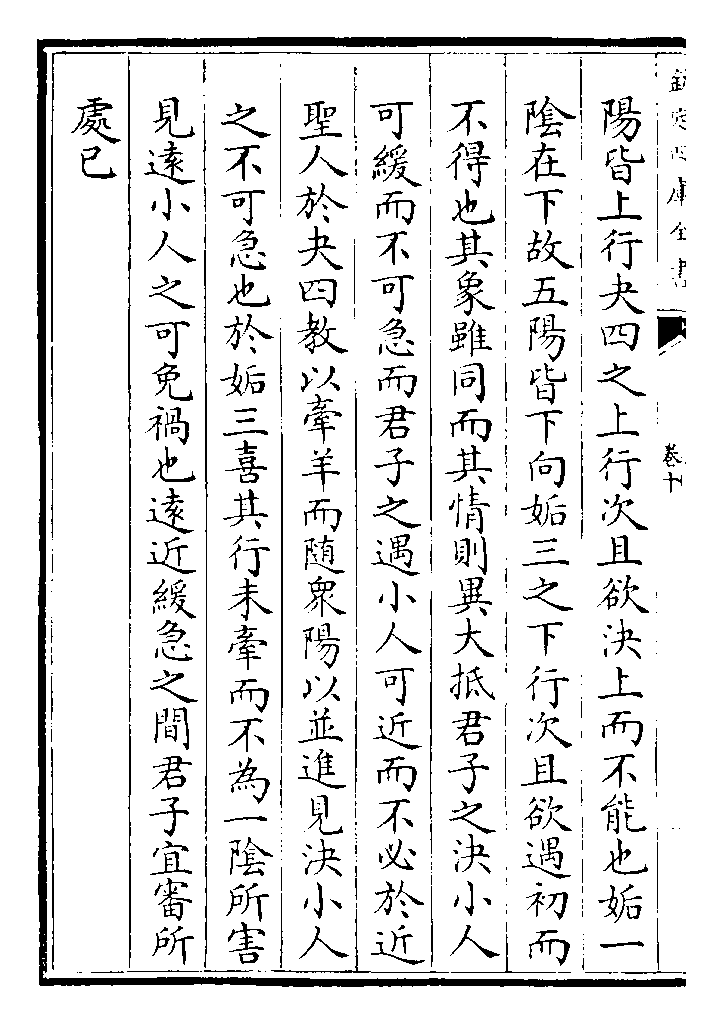 欽定四庫全書
卷十
陽皆上行夬四之上行次且欲決上而不能也姤一
陰在下故五陽皆下向姤三之下行次且欲遇初而
不得也其象雖同而其情則異大抵君子之決小人
可緩而不可急而君子之遇小人可近而不必於近
聖人於夬四教以牽羊而随衆陽以並進見決小人
之不可急也於姤三喜其行未牽而不為一陰所害
見逺小人之可免禍也逺近緩急之間君子宜審所
處已